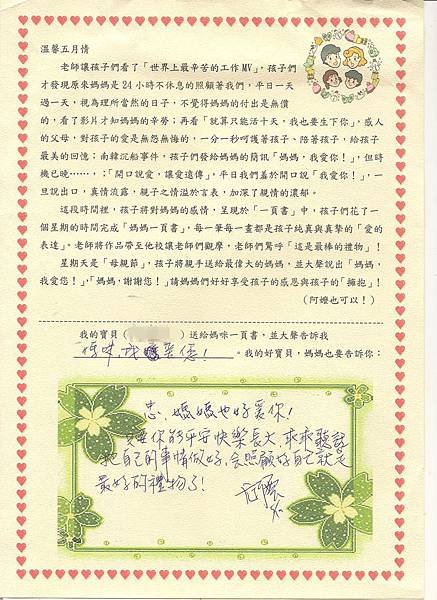 溫馨五月情
老師讓孩子們看了「世界上最辛苦的工作MV」,孩子們
才發現原來媽媽是24小時不休息的照顧著我們,平日一天
過一天,視為理所當然的日子,不覺得媽媽的付出是無價
的,看了影片才知媽媽的辛勞;再看「就算只能活十天,我也要生下你」,感人
的父母,對孩子的愛是無怨無悔的,一分一秒呵護著孩子、陪著孩子,給孩子
最美的回憶;南韓沉船事件,孩子們發給媽媽的簡訊「媽媽,我愛你!」,但時
機已晚……,;「開口說愛,讓愛遠傳」,平日我們羞於開口說「我愛你!」,一
旦說出口,真情流露,親子之情溢於言表,加深了親情的濃郁。
這段時間裡,孩子將對媽媽的感情,呈現於「一頁書」中,孩子們花了一
個星期的時間完成「媽媽一頁書」,每一筆每一畫都是孩子純真與真摯的「愛的
表達」。老師將作品帶至他校讓老師們觀摩,老師們驚呼「這是最棒的禮物」!
星期天是「母親節」,孩子將親手送給最偉大的媽媽,並大聲說出「媽媽,
我愛您!」,「媽媽,謝謝您!」請媽媽們好好享受孩子的感恩與孩子的「擁抱」!
(阿嬤也可以!)
我的寶貝( )送給媽咪一頁書,並大聲告訴我
媽咪,我愛您!。我的好寶貝,媽媽也要告訴你:
媽媽也好愛你!
只要你的平安快樂長大,乖乖聽話
把自己的事情做好,會照顧好自己就是
最好的禮物了!